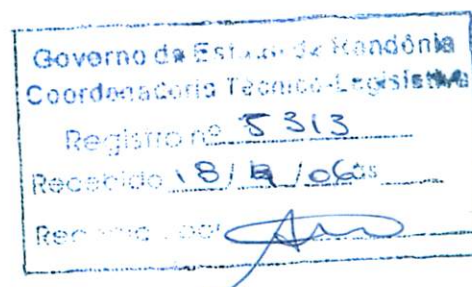 Governo do Estado de Rondônia
Coordenadoria Técnico-Legislativa
Registro nº 5313
Recebido 18/ /06 às
Recebido por